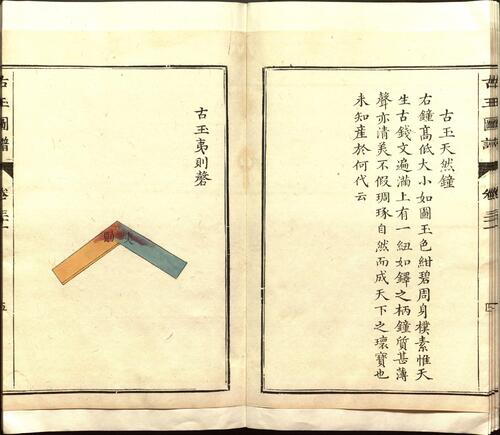 古玉圖譜
卷三
四
古玉天然鐘
右鐘高低大小如圖玉色紺碧周身樸素惟天
生古錢文遍滿上有一紐如鐸之柄鐘質甚薄
聲亦清美不假琱琢自然而成天下之瓌寶也
未知産於何代云
古玉夷則磬
夷則
古玉圖譜
卷三
五